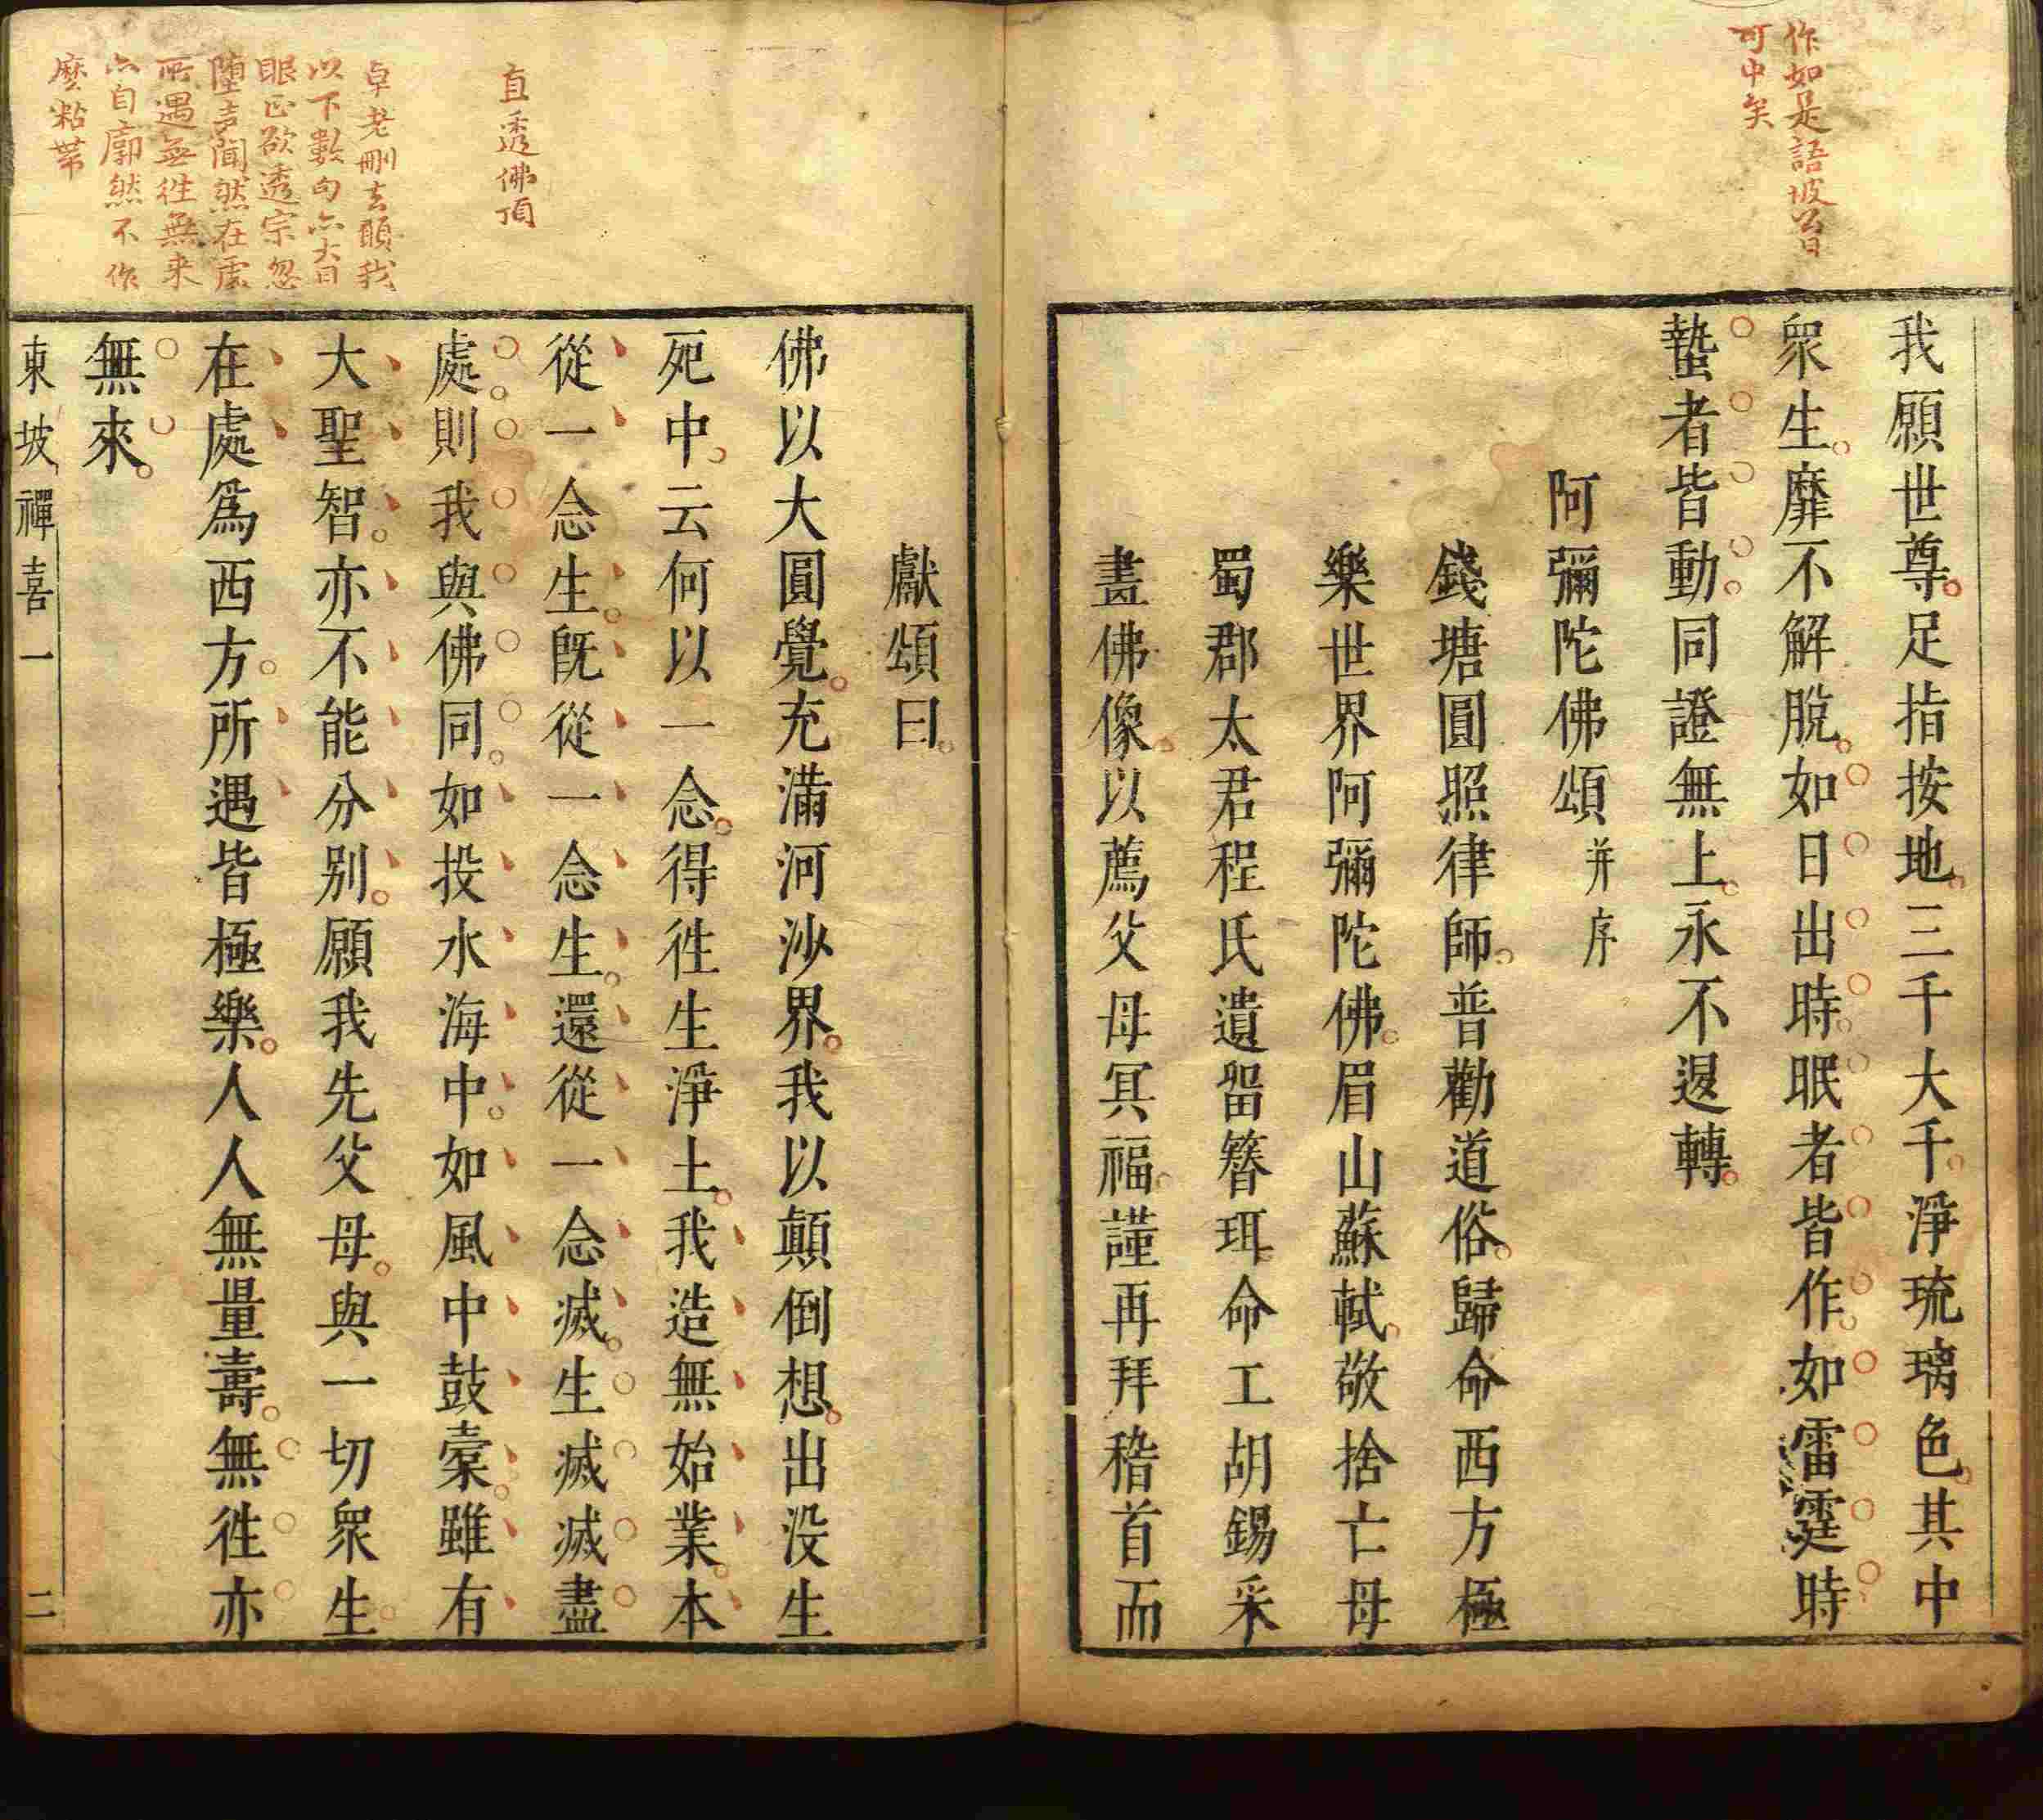 作如是語坡公旨
可中矣
我願世尊足指按地三千大千淨琉璃色其中
衆生靡不解脫如日出時眠者皆作如雷霆時
蟄者皆動同證無上永不退轉
阿彌陀佛頌并序
錢塘圓照律師普勸道俗歸命西方極
樂世界阿彌陀佛眉山蘇軾敬捨亡母
蜀郡太君程氏遺留簪珥命工胡錫采
畫佛像以薦父母冥福謹再拜稽首而
獻頌曰
直透佛頂
卓老刪去願我
以下數句亦大旨
眼正欲透宗忽
墮声聞然在處
所遇無徃無来
亦自廓然不作
麼粘帶
佛以大圓覺充滿河沙界我以顛倒想出没生
死中云何以一念得徃生淨土我造無始業本
從一念生旣從一念生還從一念滅生滅滅盡
處則我與佛同如投水海中如風中鼓橐雖有
大聖智亦不能分別願我先父母與一切衆生
在處爲西方所遇皆極樂人人無量壽無徃亦
無來
東坡禪喜一
二